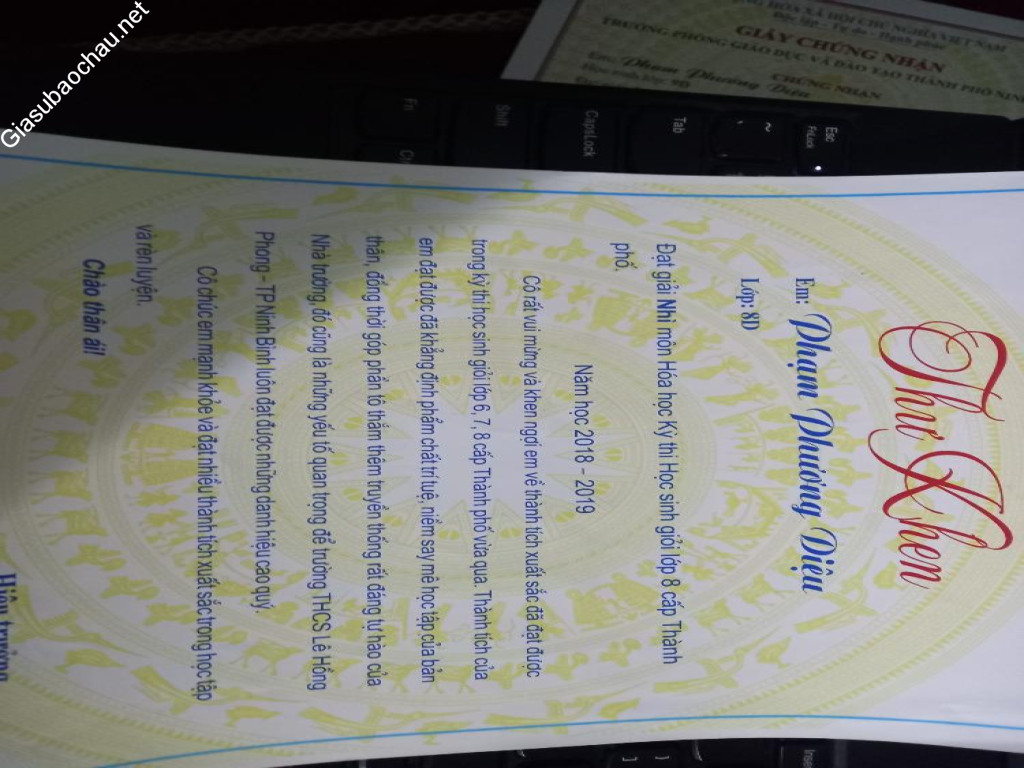 Giasubaochau.net
CỘNG HÒA XÃ HỘI CHỦ NGHĨA VIỆT NAM
Độc lập - Tự do - Hạnh phúc
GIẤY CHỨNG NHẬN
TRƯỞNG PHÒNG GIÁO DỤC VÀ ĐÀO TẠO THÀNH PHỐ NINH
CHỨNG NHẬN
Em: Phạm Phương Diệu
Esc
FnLock
~
Tab
CapsLock
Shift
Fn
Insert
Thư Khen
Em: Phạm Phương Diệu
Lớp: 8D
Đạt giải Nhì môn Hóa học Kỳ thi Học sinh giỏi lớp 8 cấp Thành
phố.
Năm học 2018 - 2019
Cô rất vui mừng và khen ngợi em về thành tích xuất sắc đã đạt được
trong kỳ thi học sinh giỏi lớp 6, 7, 8 cấp Thành phố vừa qua. Thành tích của
em đạt được đã khẳng định phẩm chất trí tuệ, niềm say mê học tập của bản
thân, đồng thời góp phần tô thắm thêm truyền thống rất đáng tự hào của
Nhà trường, đó cũng là những yếu tố quan trọng để trường THCS Lê Hồng
Phong - TP Ninh Bình luôn đạt được những danh hiệu cao quý.
Cô chúc em mạnh khỏe và đạt nhiều thành tích xuất sắc trong học tập
và rèn luyện.
Chào thân ái!
Hiệu trưởng